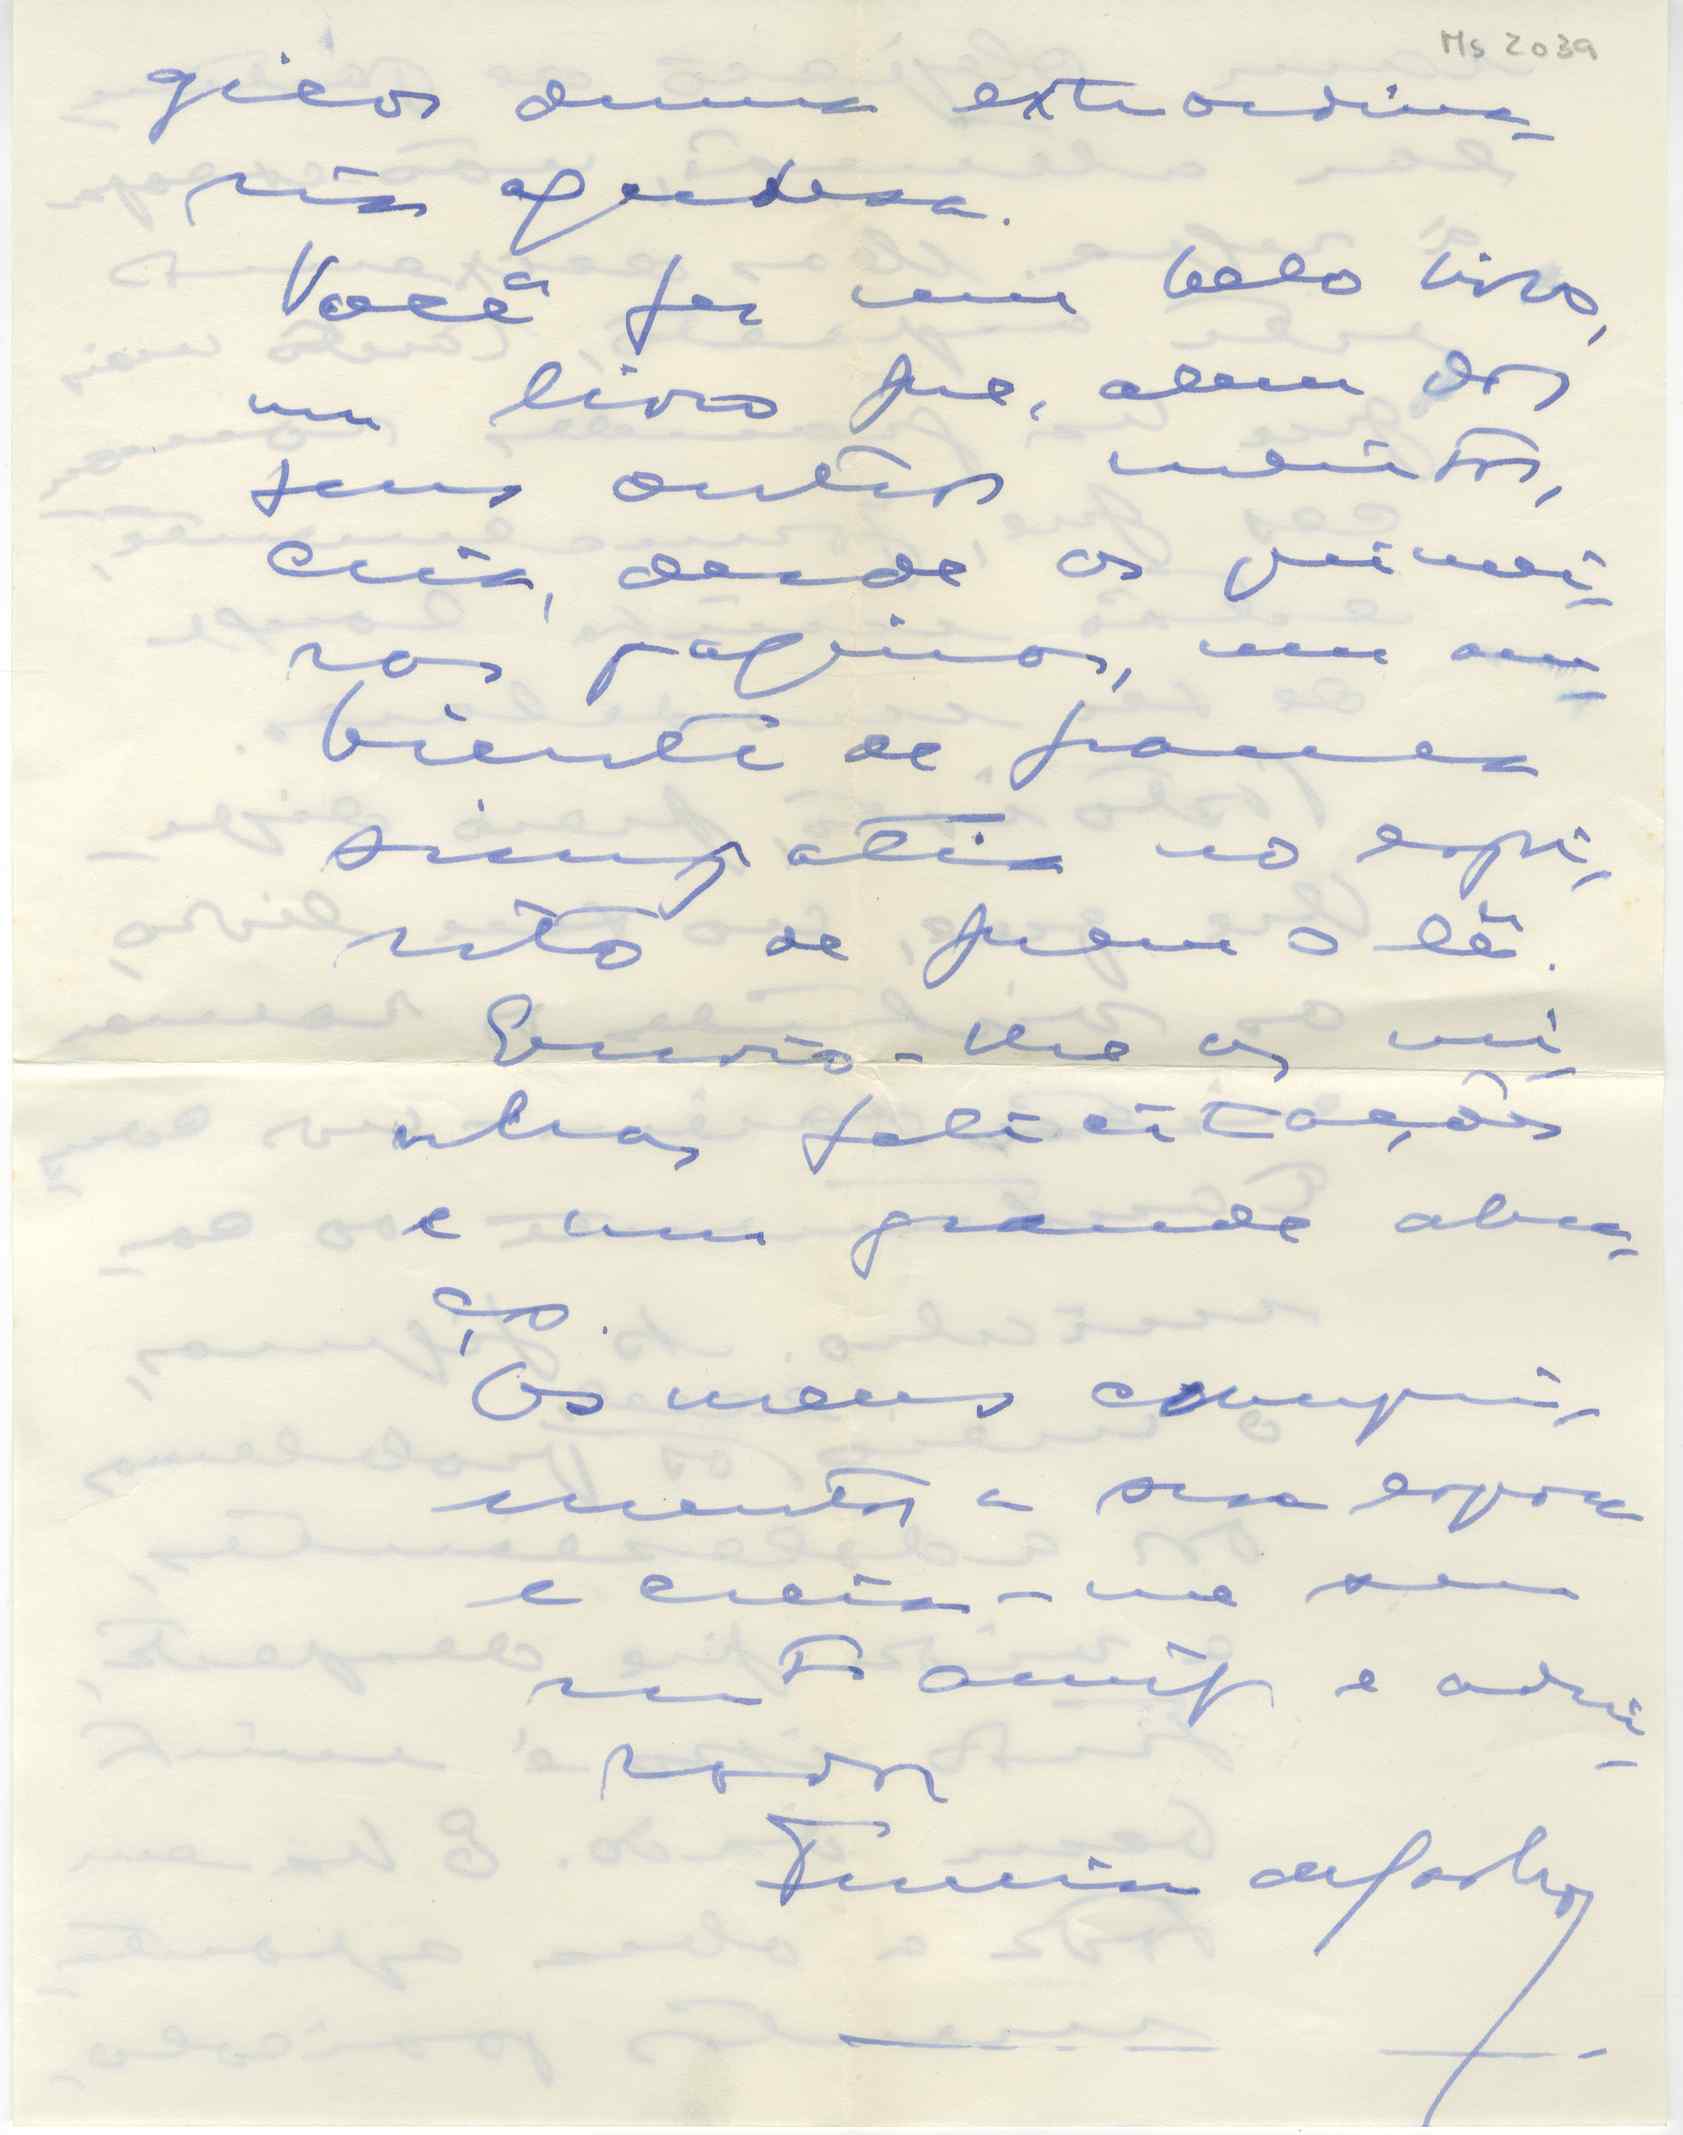 Ms 2039
gicos duma extraordiná-
ria agudeza.
Você fez um belo livro,
um livro que, alem dos
seus outros meritos,
cria, desde as primei-
ras paginas, um am-
biente de franca
simpatia no espi-
rito de quem o lê.
Envio-lhe as mi-
nhas felicitações
e um grande abra-
ço.
Os meus cumpri-
mentos a sua esposa
e creia-me seu
mto amigo e admi-
rador
de Castro